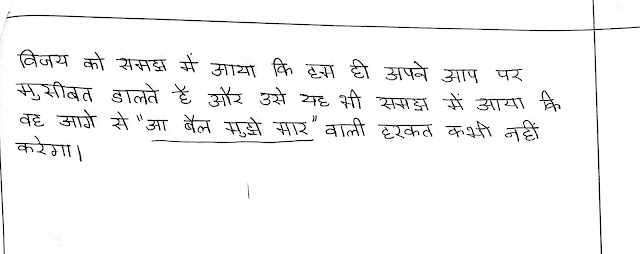 विजय को समझ में आया कि हम ही अपने आप पर
मुसीबत डालते हैं और उसे यह भी समझ में आया कि
वह आगे से "आ बैल मुझे मार" वाली हरकत कभी नहीं
करेगा।